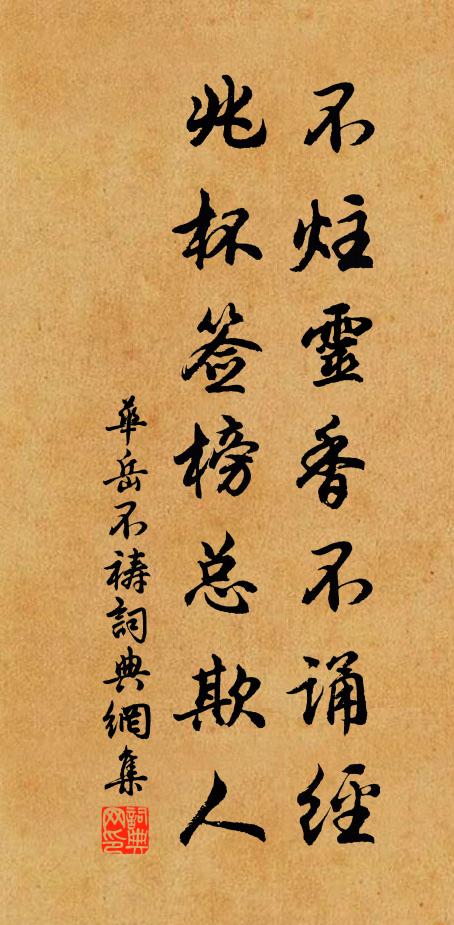 不炷靈香不诵經
兆杯签榜总欺人
華岳不禱詞典網集
詞典网印